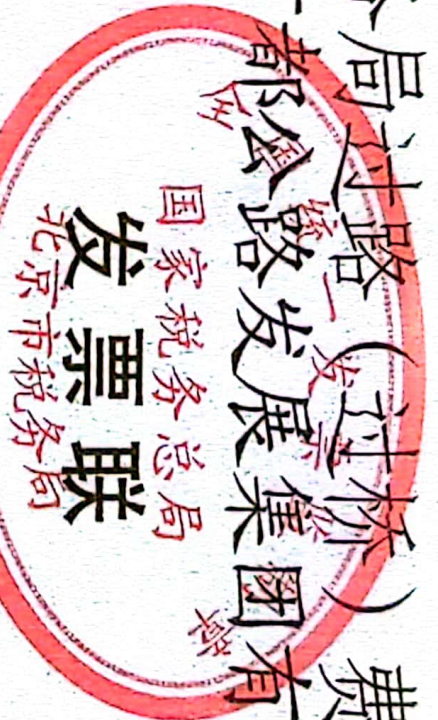 局过路（过桥）费
都公路发展集团有
全国统一发票监制章
国家税务总局
发票联
北京市税务局